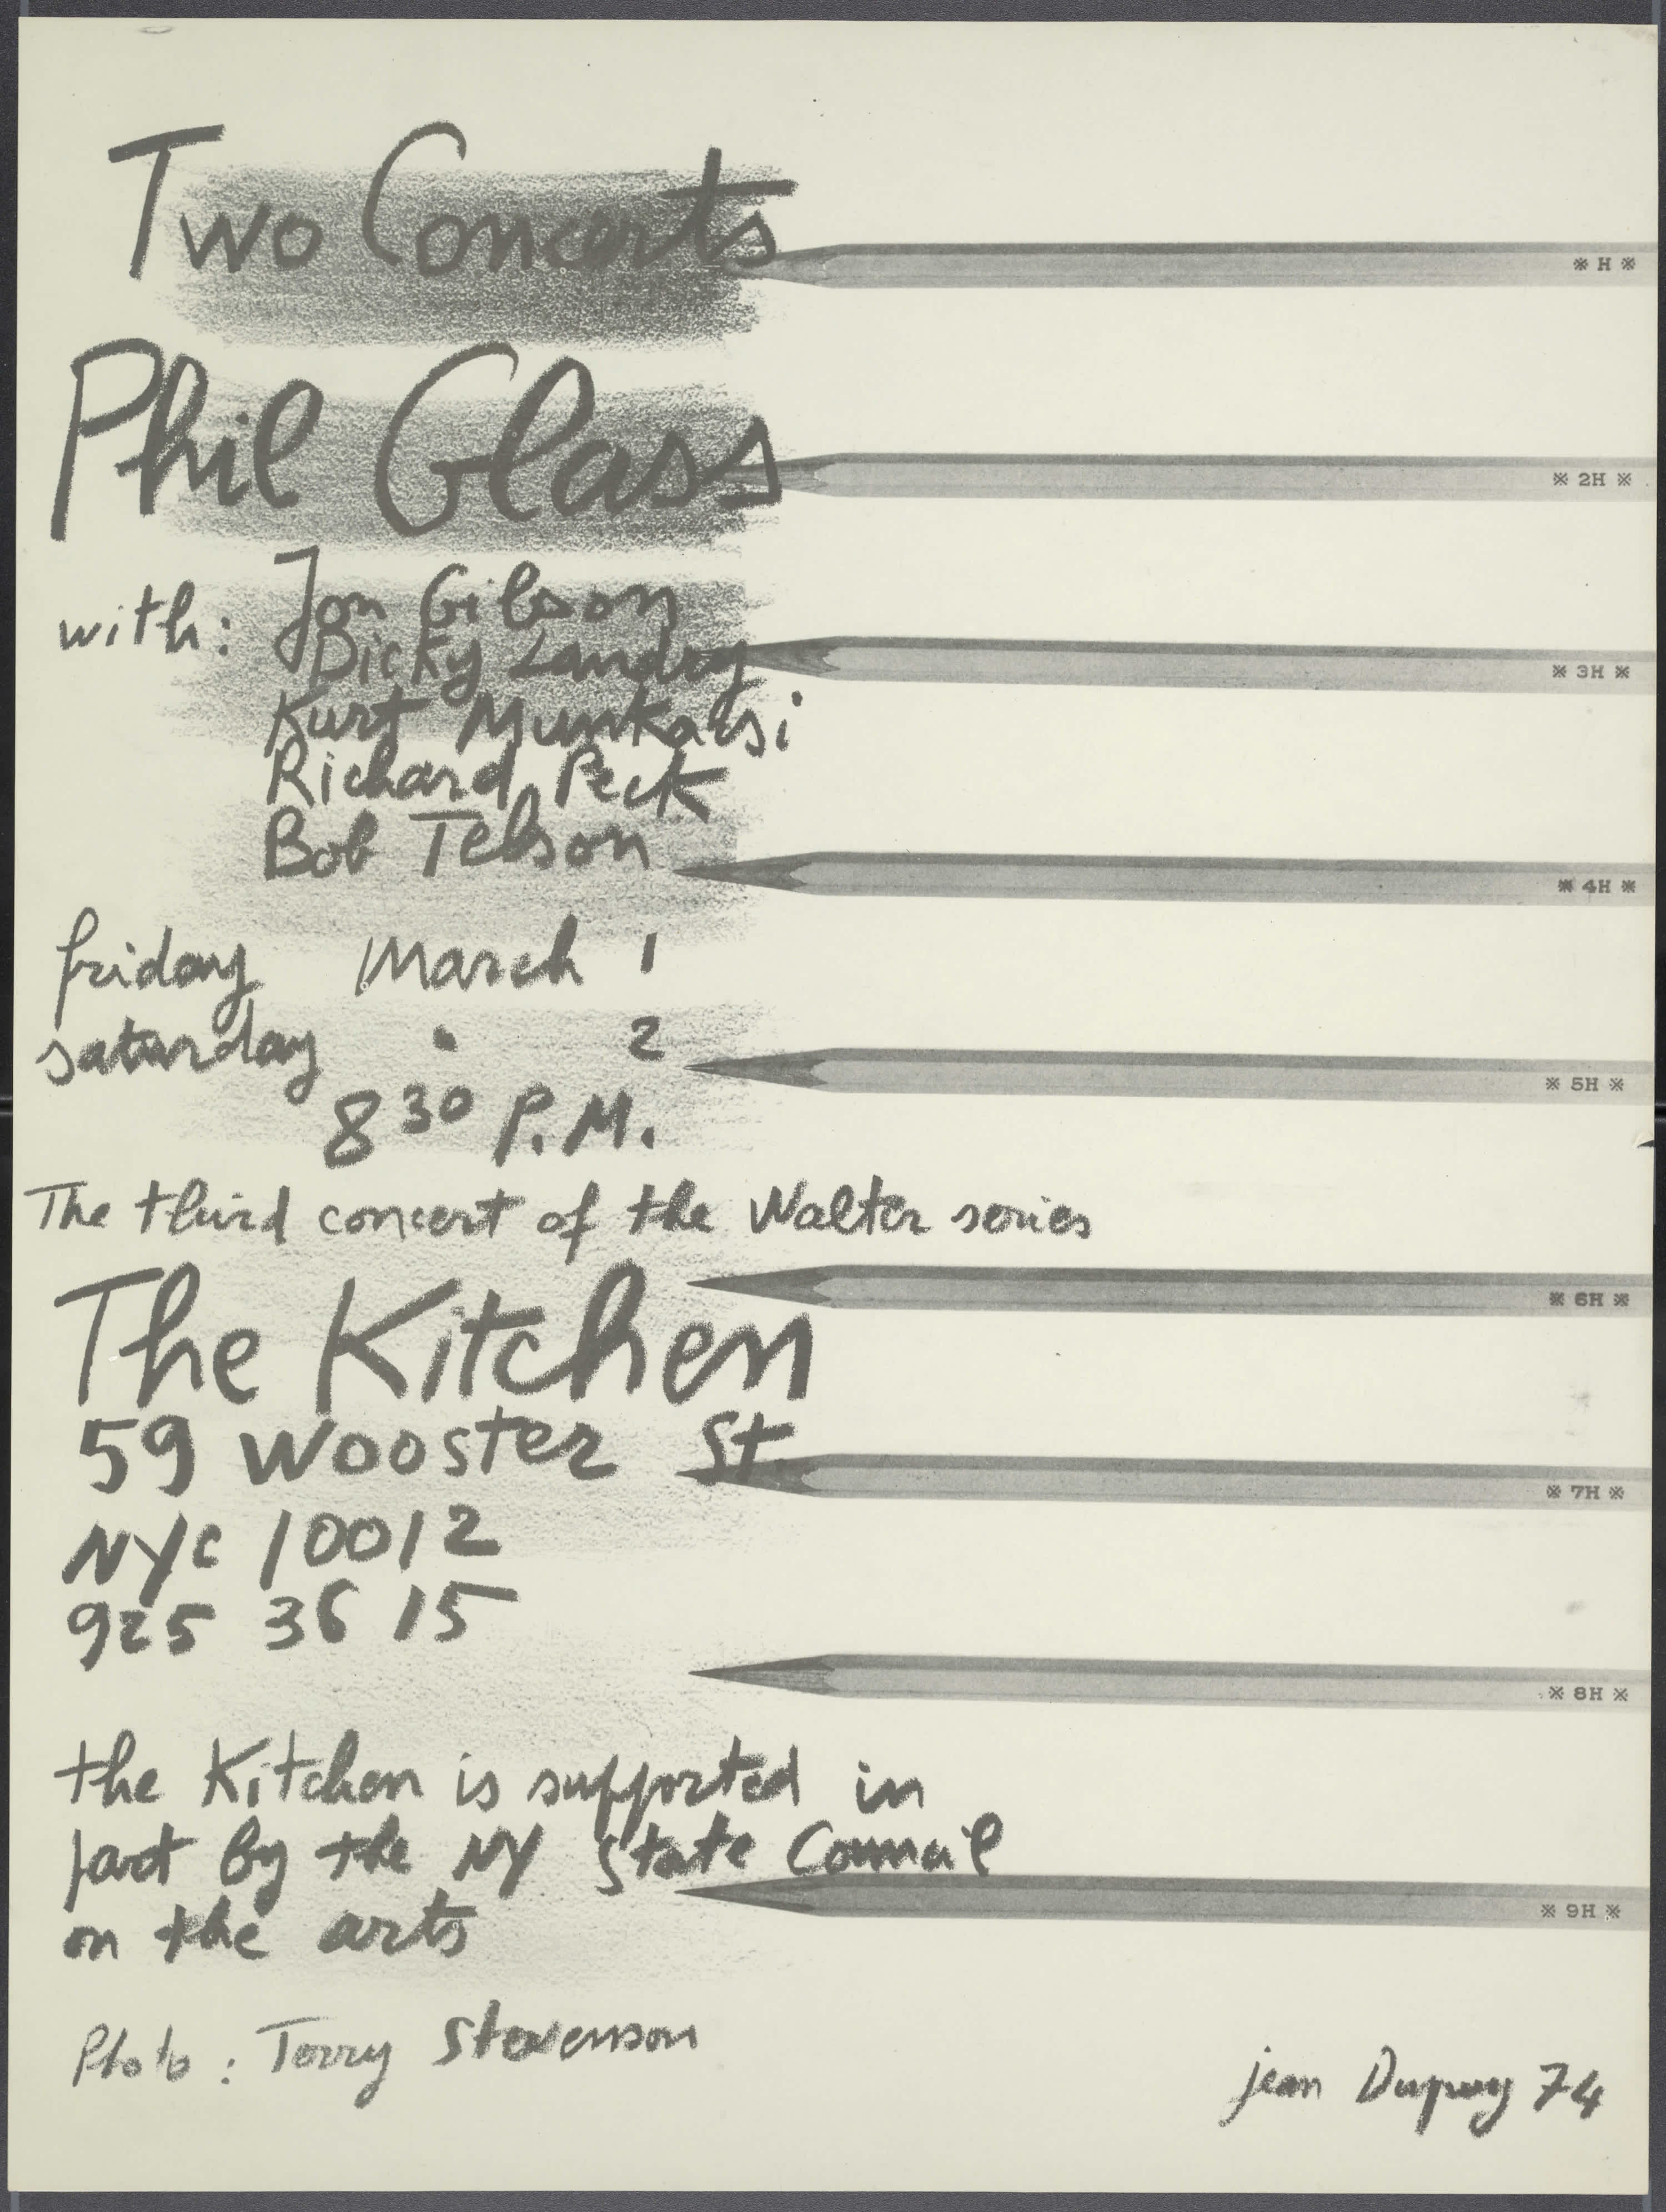 Two Concerts
※ H ※
Phil Glass
※ 2H ※
with: Jon Gibson
Dicky Landry
※ 3H ※
Kurt Munkacsi
Richard Peck
Bob Telson
※ 4H ※
friday March 1
saturday " 2
※ 5H ※
8 30 P.M.
The third concert of the Walter series
※ 6H ※
The Kitchen
59 Wooster St.
※ 7H ※
NYC 10012
925 36 15
※ 8H ※
the Kitchen is supported in
part by the NY State Council
※ 9H ※
on the arts
Photo : Terry Stevenson
jean Dupuy 74